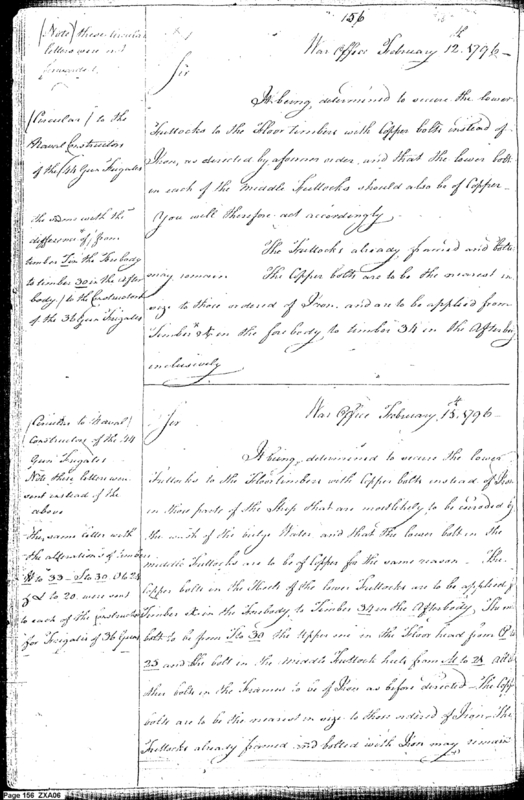 156
(Note) these circular
letters were not
forwarded
War Office February 12th 1796
Sir
(Circular) to the
Naval Constructors
of the 44 Gun Frigates
It being determined to secure the lower
Futtocks to the Floor timbers with Copper bolts instead of
Iron, as directed by a former order, and that the lower bolt
in each of the middle Futtocks should also be of Copper
You will therefore act accordingly
the same with the
difference of (from
timber in the Forebody
to timber 30 in the After
body) to the Constructors
of the 36 Gun Frigates
The Futtocks already framed and bolted
may remain The Copper bolts are to be the nearest in
size to those ordered of Iron, and are to be applied from
Timber in the forebody, to timber 34 in the Afterbody
inclusively
War Office February 1796
Sir
Circular to Naval
Constructors of the 44
Gun Frigates
Note these letters were
sent instead of the
above
It being determined to secure the lower
Futtocks to the Floor timbers with Copper bolts instead of Iron
in those parts of the Ship that are most likely to be corroded by
the wash of the bilge Water and that the lower bolt in the
middle Futtocks are to be of Copper for the same reason. The
Copper bolts in the of the lower Futtocks are to be applied from
Timber in the Forebody to Timber 34 in the Afterbody, The
bolt to be from to 30 the upper one in the Floor head from to
25 and the bolt in the middle Futtock heels from M to 24 all
other bolts in the Frames to be of Iron as before directed The Copper
bolts are to be the nearest in size to those ordered of Iron. The
Futtocks already framed and bolted with Iron may remain
The same letter with
the alterations of timbers
to 33 to 30 to 24
& to 20 were sent
to each of the Constructors
for Frigates of 36 Guns
Page 156 ZXA06